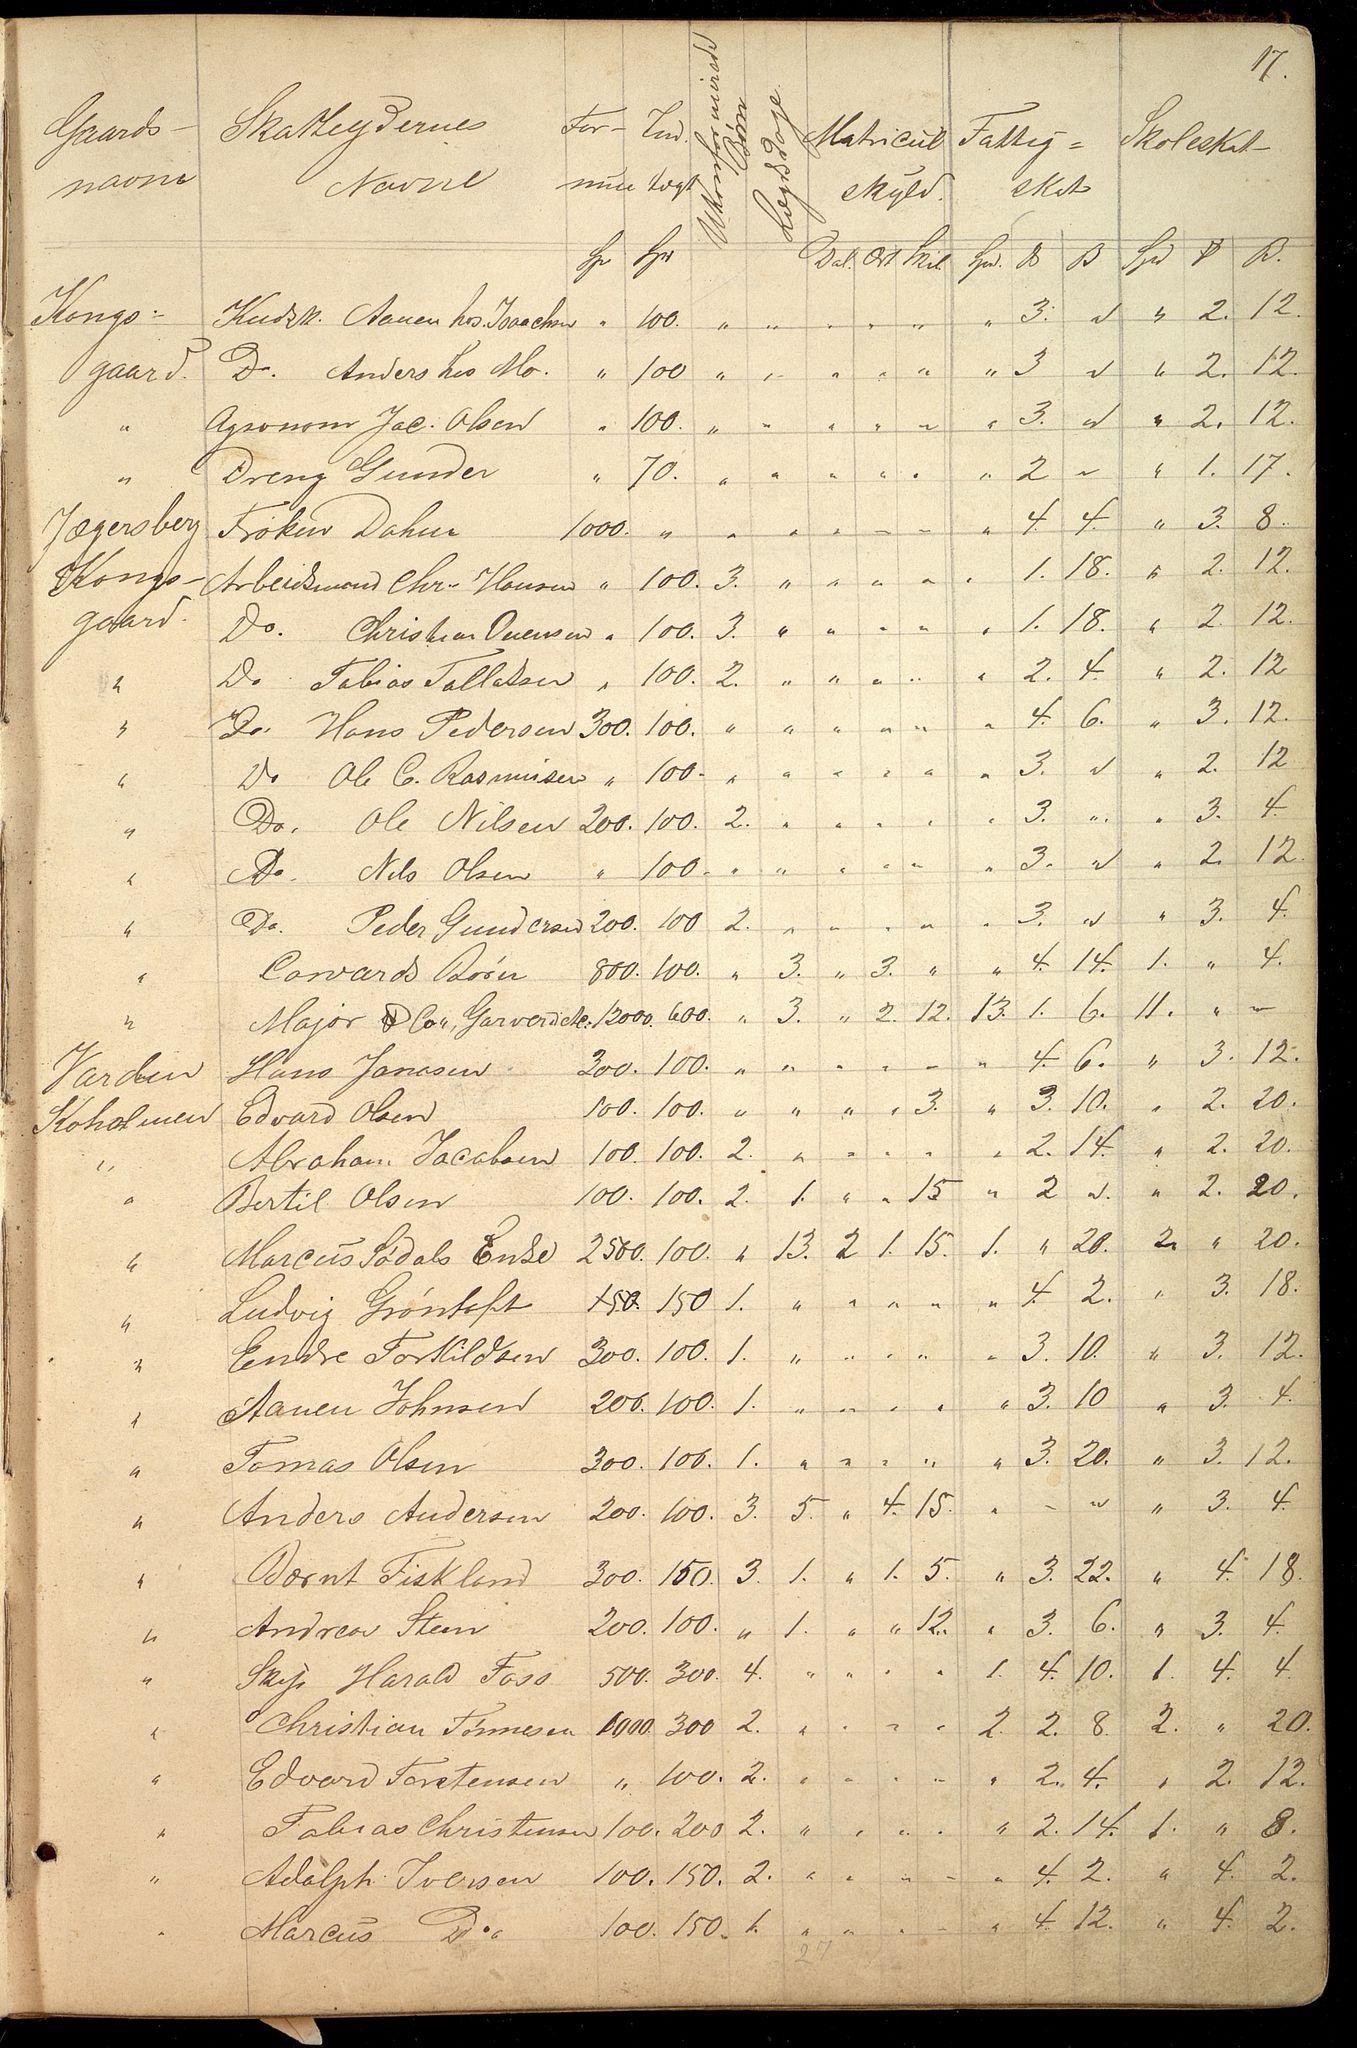 17.
Gaards- Skatteydernes For- Ind. Ukonfirmerede Børn Lægdsdage. Matricul Fattig= Skoleskat
navne Navne mue tægt skyld. skat
Sp Spd Dal. Ort Skil Spd. Spd B.
Kongs- Kudsk. Aanen hos Isaachsen " 100. " " " " " " 3. " " 2. 12.
gaard. Do. Anders hos Mo. " 100 " " " " " " 3 " " 2. 12.
" Agronom Jac. Olsen " 100. " " " " " " 3. " " 2. 12.
" Dreng Gunder " 70. " " " " " " 2 " " 1. 17.
Jægersberg Frøken Dahm 1000. " " " " " " " 4. 4. " 3. 8.
Kongs- Arbeidsmand Chr. Hansen " 100. 3. " " " " " 1. 18. " 2. 12.
gaard. Do. Christian Ovensen " 100. 3. " " " " " 1. 18. " 2. 12.
" Do Tobias Tallaksen " 100. 2. " " " " " 2. 4. " 2. 12
" Do. Hans Pedersen 300. 100. " " " " " " 4. 6. " 3. 12.
" Do Ole C. Rasmusen " 100. " " " " " " 3. " " 2. 12
" Do. Ole Nilsen 200. 100. 2. " " " " " 3. " " 3. 4.
" Do. Nils Olsen " 100. " " " " " " 3. " " 2. 12.
" Do. Peder Gundersen 200. 100 2. " " " " " 3. " " 3. 4.
" Corvards Børn 800. 100. " 3. " 3. " " 4. 14. 1. " 4.
" Major & Co", Garverd 12000. 600. " 3. " 2. 12. 13. 1. 6. 11. " "
Varden Hans Jansen 300. 100. " " " " " " 4. 6. " 3. 12.
Koholmen Edvard Olsen 100. 100. " " " " 3. " 3. 10. " 2. 20.
" Abraham Jacobsen 100. 100. 2. " " " " " 2. 14. " 2. 20.
" Bertil Olsen 100. 100. 2. 1. " " 15 " 2 " " 2. 20.
" Marcus Sødals Enke 2500. 100. " 13. 2 1. 15. 1. " 20. 2. " 20.
" Ludvig Grøntoft 150. 150 1. " " " " " 4. 2. " 3. 18.
" Endre Torkildsen 300. 100. 1. " " " " " 3. 10. " 3. 12.
" Aanen Johnsen 200. 100. 1. " " " " " 3. 10 " 3. 4.
" Tomas Olsen 300. 100. 1. " " " " " 3. 20. " 3. 12.
" Anders Andersen 200. 100. 3. 5. " 4. 15. " " " " 3. 4.
" Bernt Fiskland 300. 150. 3. 1. " 1. 5. " 3. 22. " 4. 18.
" Andreas Steen 200. 100. " 1. " " 12. " 3. 6. " 3. 4.
" Skip Harald Foss 500. 300. 4. " " " " 1. 4. 10. 1. 4. 4.
" Christian Tønnesen 1000. 300 2. " " " " 2. 2. 8. 2. " 20.
" Edvard Torstensen " 100. 2. " " " " " 2. 4. " 2. 12.
" Tobias Christensen 100. 200 2. " " " " " 2. 14. 1. " 8.
" Adolph Iversen 100. 150. 2. " " " " " 4. 2. " 4. 2.
" Marcus Do 100. 150. 1. " " " " " 4. 12. " 4. 2.
27